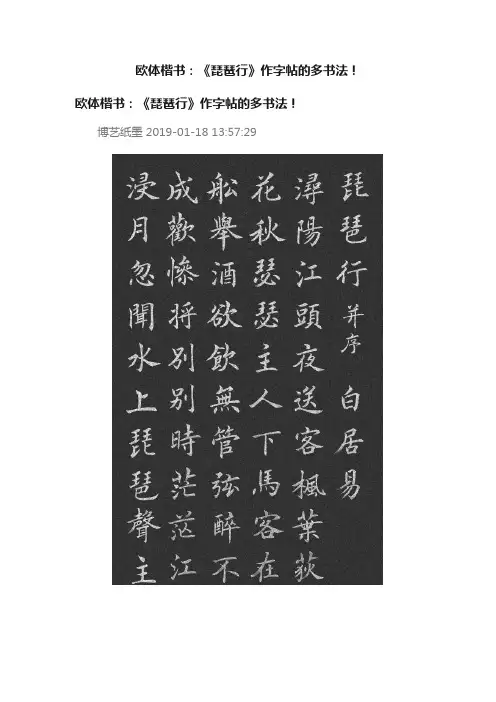 欧体楷书：《琵琶行》作字帖的多书法！
欧体楷书：《琵琶行》作字帖的多书法！
博艺纸墨 2019-01-18 13:57:29
琵琶行并序 白居易
潯陽江頭夜送客楓葉荻
花秋瑟瑟主人下馬客在
舩舉酒欲飲無管弦醉不
成歡慘将别别時茫茫江
浸月忽聞水上琵琶聲主